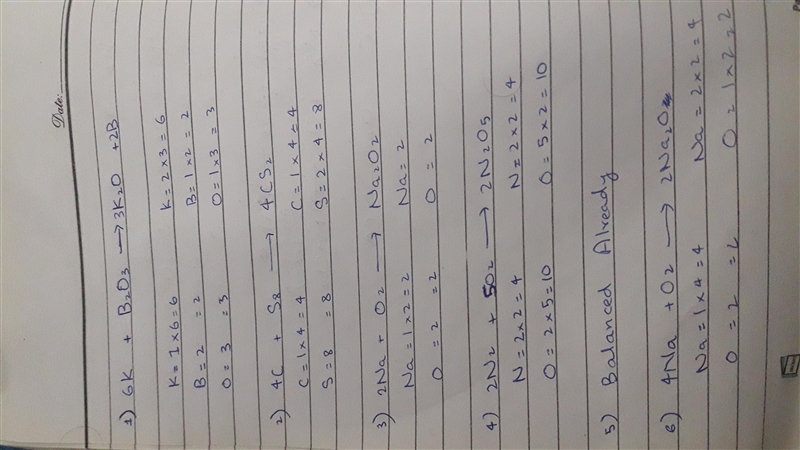 Date:
1) 6K + B2O3 → 3K2O + 2B
K = 1×6 = 6 K = 2×3 = 6
B = 2 = 2 B = 1×2 = 2
O = 3 = 3 O = 1×3 = 3
2) 4C + S8 → 4CS2
C = 1×4 = 4 C = 1×4 = 4
S = 8 = 8 S = 2×4 = 8
3) 2Na + O2 → Na2O2
Na = 1×2 = 2 Na = 2
O = 2 = 2 O = 2
4) 2N2 + 5O2 → 2N2O5
N = 2×2 = 4 N = 2×2 = 4
O = 2×5 = 10 O = 5×2 = 10
5) Balanced Already
6) 4Na + O2 → 2Na2O
Na = 1×4 = 4 Na = 2×2 = 4
O = 2 = 2 O = 1×2 = 2